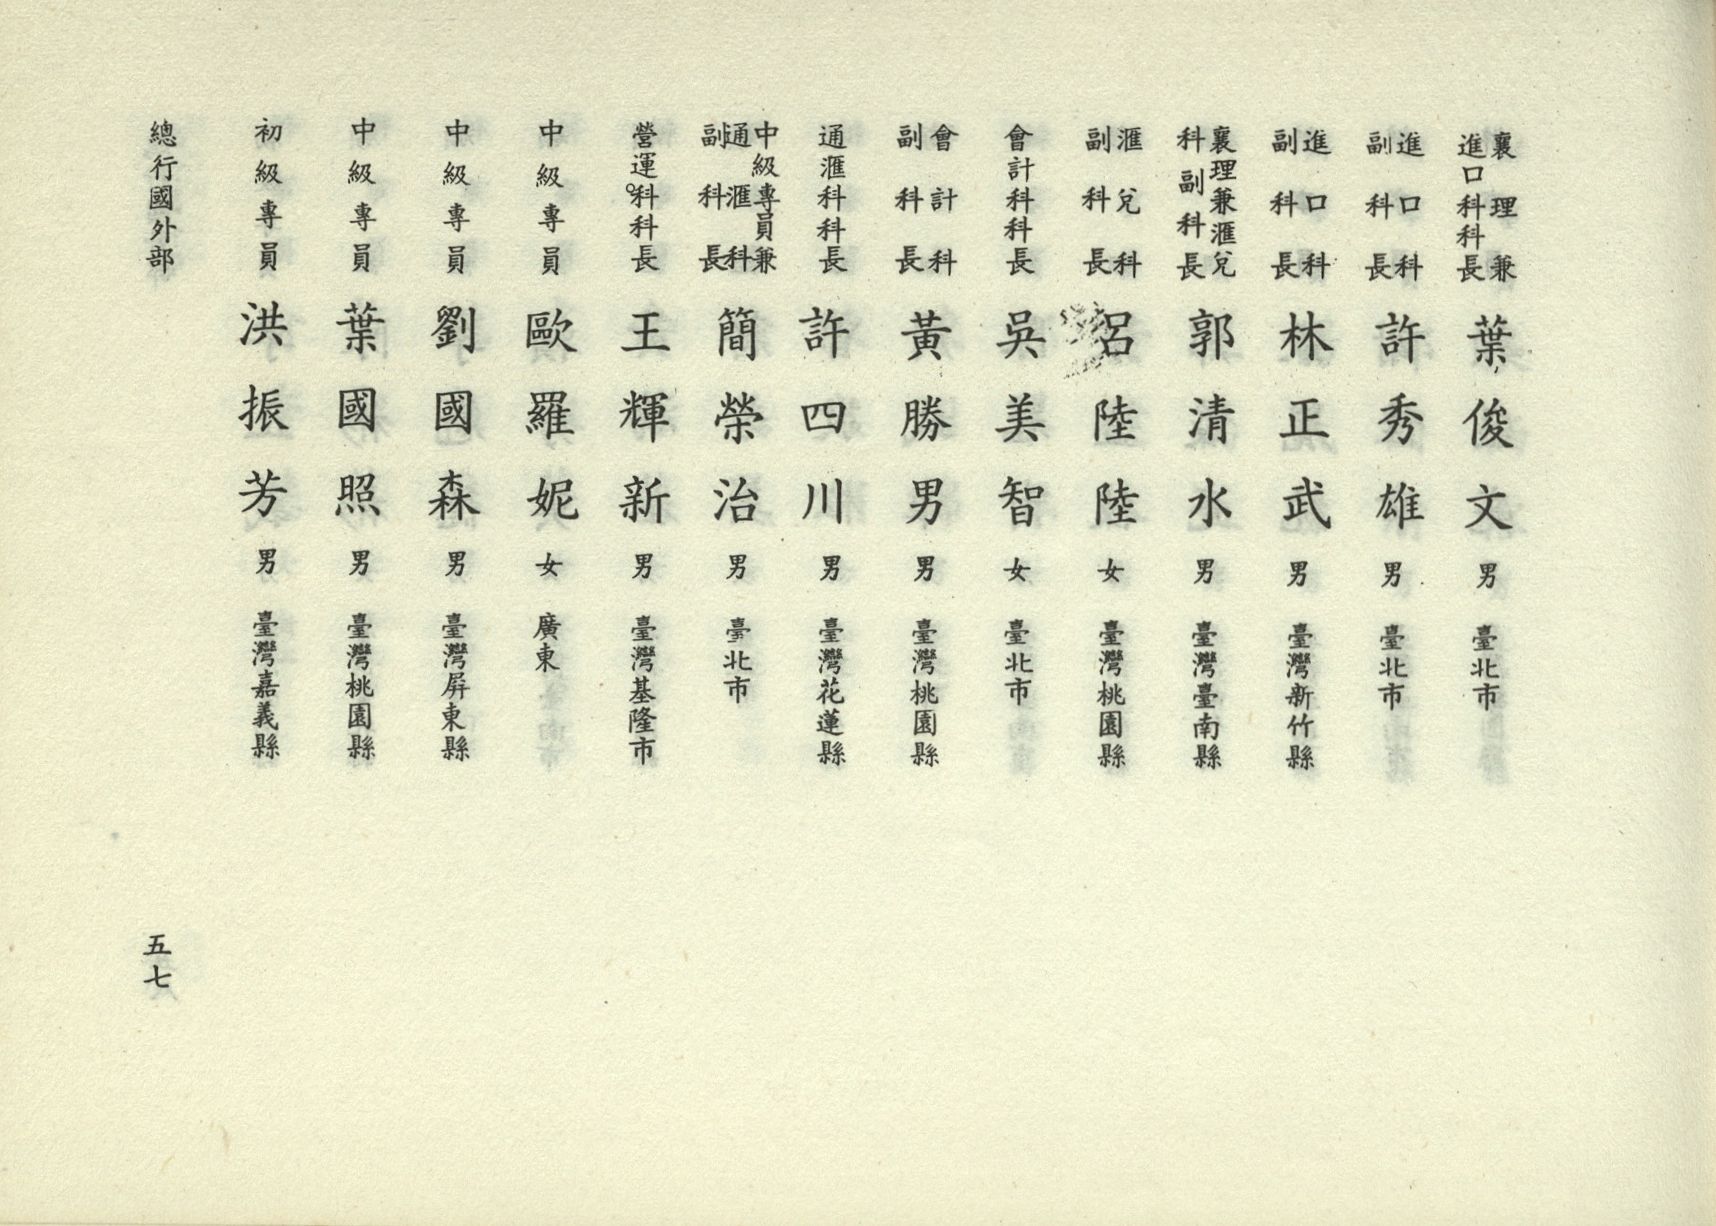 襄理兼進口科科長 葉俊文 男 臺北市
進口科副科長 許秀雄 男 臺北市
進口科副科長 林正武 男 臺灣新竹縣
襄理兼滙兌科副科長 郭清水 男 臺灣臺南縣
滙兌科副科長 呂陸陸 女 臺灣桃園縣
會計科科長 吳美智 女 臺北市
會計科副科長 黃勝男 男 臺灣桃園縣
通滙科科長 許四川 男 臺灣花蓮縣
中級專員兼通滙科副科長 簡榮治 男 臺北市
營運科科長 王輝新 男 臺灣基隆市
中級專員 歐羅妮 女 廣東
中級專員 劉國森 男 臺灣屏東縣
中級專員 葉國照 男 臺灣桃園縣
初級專員 洪振芳 男 臺灣嘉義縣
總行國外部
五七